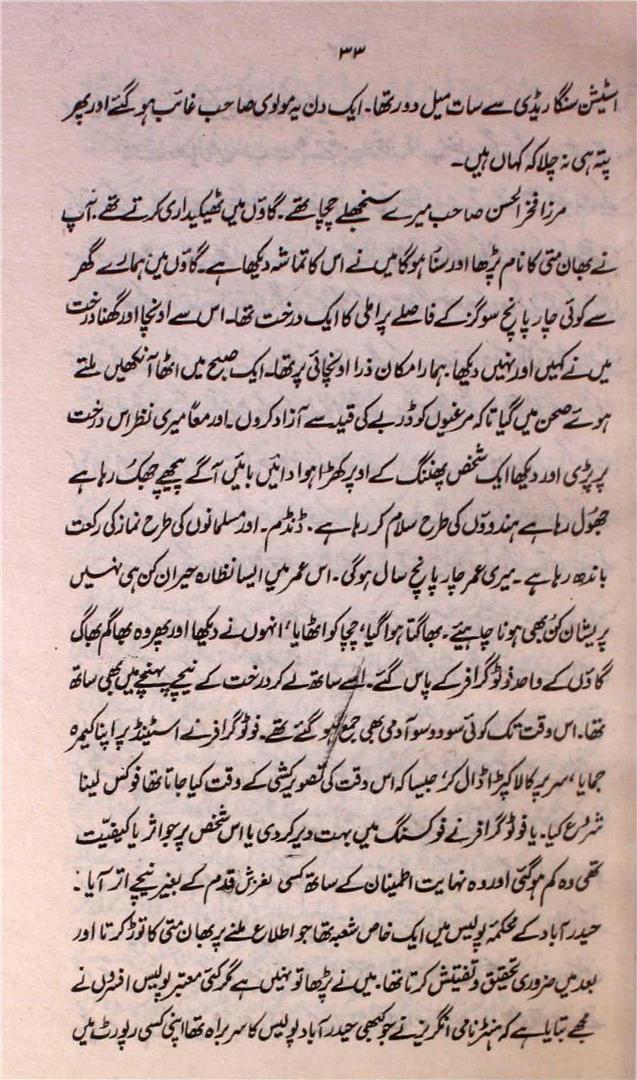 ۳۳
اسٹیشن سنگا ریڈی سے سات میل دور تھا۔ ایک دن یہ مولوی صاحب غائب ہو گئے اور پھر
پتہ ہی نہ چلا کہ کہاں ہیں۔
مرزا فخر الحسن صاحب میرے سنجھلے چچا تھے۔ گاؤں میں ٹھیکیداری کرتے تھے۔ آپ
نے بھان متی کا نام پڑھا اور سنا ہوگا میں نے اس کا تماشہ دیکھا ہے۔ گاؤں میں ہمارے گھر
سے کوئی چار پانچ سو گز کے فاصلے پر املی کا ایک درخت تھا۔ اس سے اونچا اور گھنا درخت
میں نے کہیں اور نہیں دیکھا۔ ہمارا مکان ذرا اونچائی پر تھا۔ ایک صبح میں اٹھا آنکھیں ملتے
ہوئے صحن میں گیا تاکہ مرغیوں کو ڈربے کی قید سے آزاد کروں۔ اور معاً میری نظر اس درخت
پر پڑی اور دیکھا ایک شخص پھننگ کے اوپر کھڑا ہوا دائیں بائیں آگے پیچھے جھک رہا ہے
جھول رہا ہے ہندوؤں کی طرح سلام کر رہا ہے۔ ڈنڈم۔ اور مسلمانوں کی طرح نماز کی رکعت
باندھ رہا ہے۔ میری عمر چار پانچ سال ہوگی۔ اس عمر میں ایسا نظارہ حیران کن ہی نہیں
پریشان کن بھی ہونا چاہیئے۔ بھاگتا ہوا گیا، چچا کو اٹھایا، انہوں نے دیکھا اور پھر وہ بھاگم بھاگ
گاؤں کے واحد فوٹوگرافر کے پاس گئے۔ اسے ساتھ لے کر درخت کے نیچے پہنچے میں بھی ساتھ
تھا۔ اس وقت تک کوئی سو دو سو آدمی بھی جمع ہو گئے تھے۔ فوٹوگرافر نے اسٹینڈ پر اپنا کیمرہ
جمایا، سر پر کالا کپڑا ڈال کر، جیسا کہ اس وقت کی تصویر کشی کے وقت کیا جاتا تھا فوکس لینا
شروع کیا۔ یا فوٹوگرافر نے فوکسنگ میں بہت دیر کر دی یا اس شخص پر جو اثر یا کیفیت
تھی وہ کم ہو گئی اور وہ نہایت اطمینان کے ساتھ کسی لغزش قدم کے بغیر نیچے اتر آیا۔
حیدرآباد کے محکمہ پولیس میں ایک خاص شعبہ تھا جو اطلاع ملنے پر بھان متی کا توڑ کرتا اور
بعد میں ضروری تحقیق و تفتیش کرتا تھا۔ میں نے پڑھا تو نہیں ہے مگر کئی معتبر پولیس افسروں نے
مجھے بتایا ہے کہ ہنٹر نامی انگریز نے جو کبھی حیدرآباد پولیس کا سربراہ تھا اپنی کسی رپورٹ میں